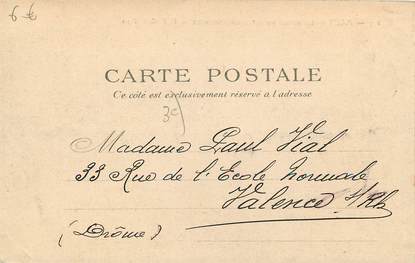 6 €
CARTE POSTALE
Ce côté est exclusivement réservé à l'adresse
Madame Paul Vial
33 Rue de l'Ecole normale
Valence s/Rh
(Drôme)